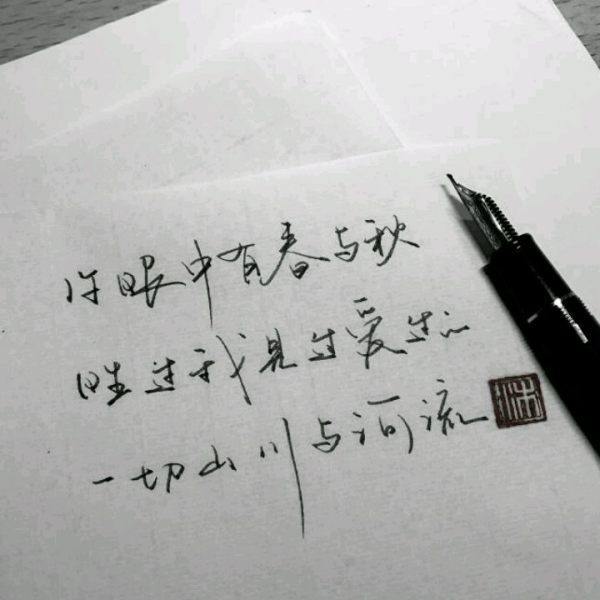 你眼中有春与秋
胜过于我见过爱过的
一切山川与河流